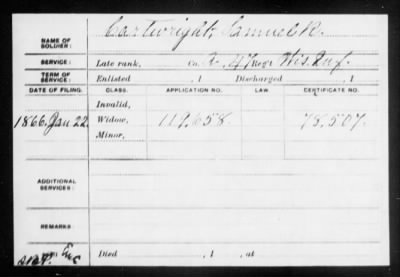 NAME OF SOLDIER: Cartwright, Samuel R.
SERVICE: Late rank, Co. 47 Reg't Wis. Inf.
TERM OF SERVICE: Enlisted , 1 Discharged , 1
DATE OF FILING. CLASS. APPLICATION NO. LAW. CERTIFICATE NO.
Invalid,
1866, Jan 22. Widow, 119,658 78,507.
Minor,
ADDITIONAL SERVICES:
REMARKS:
Died , 1 , at